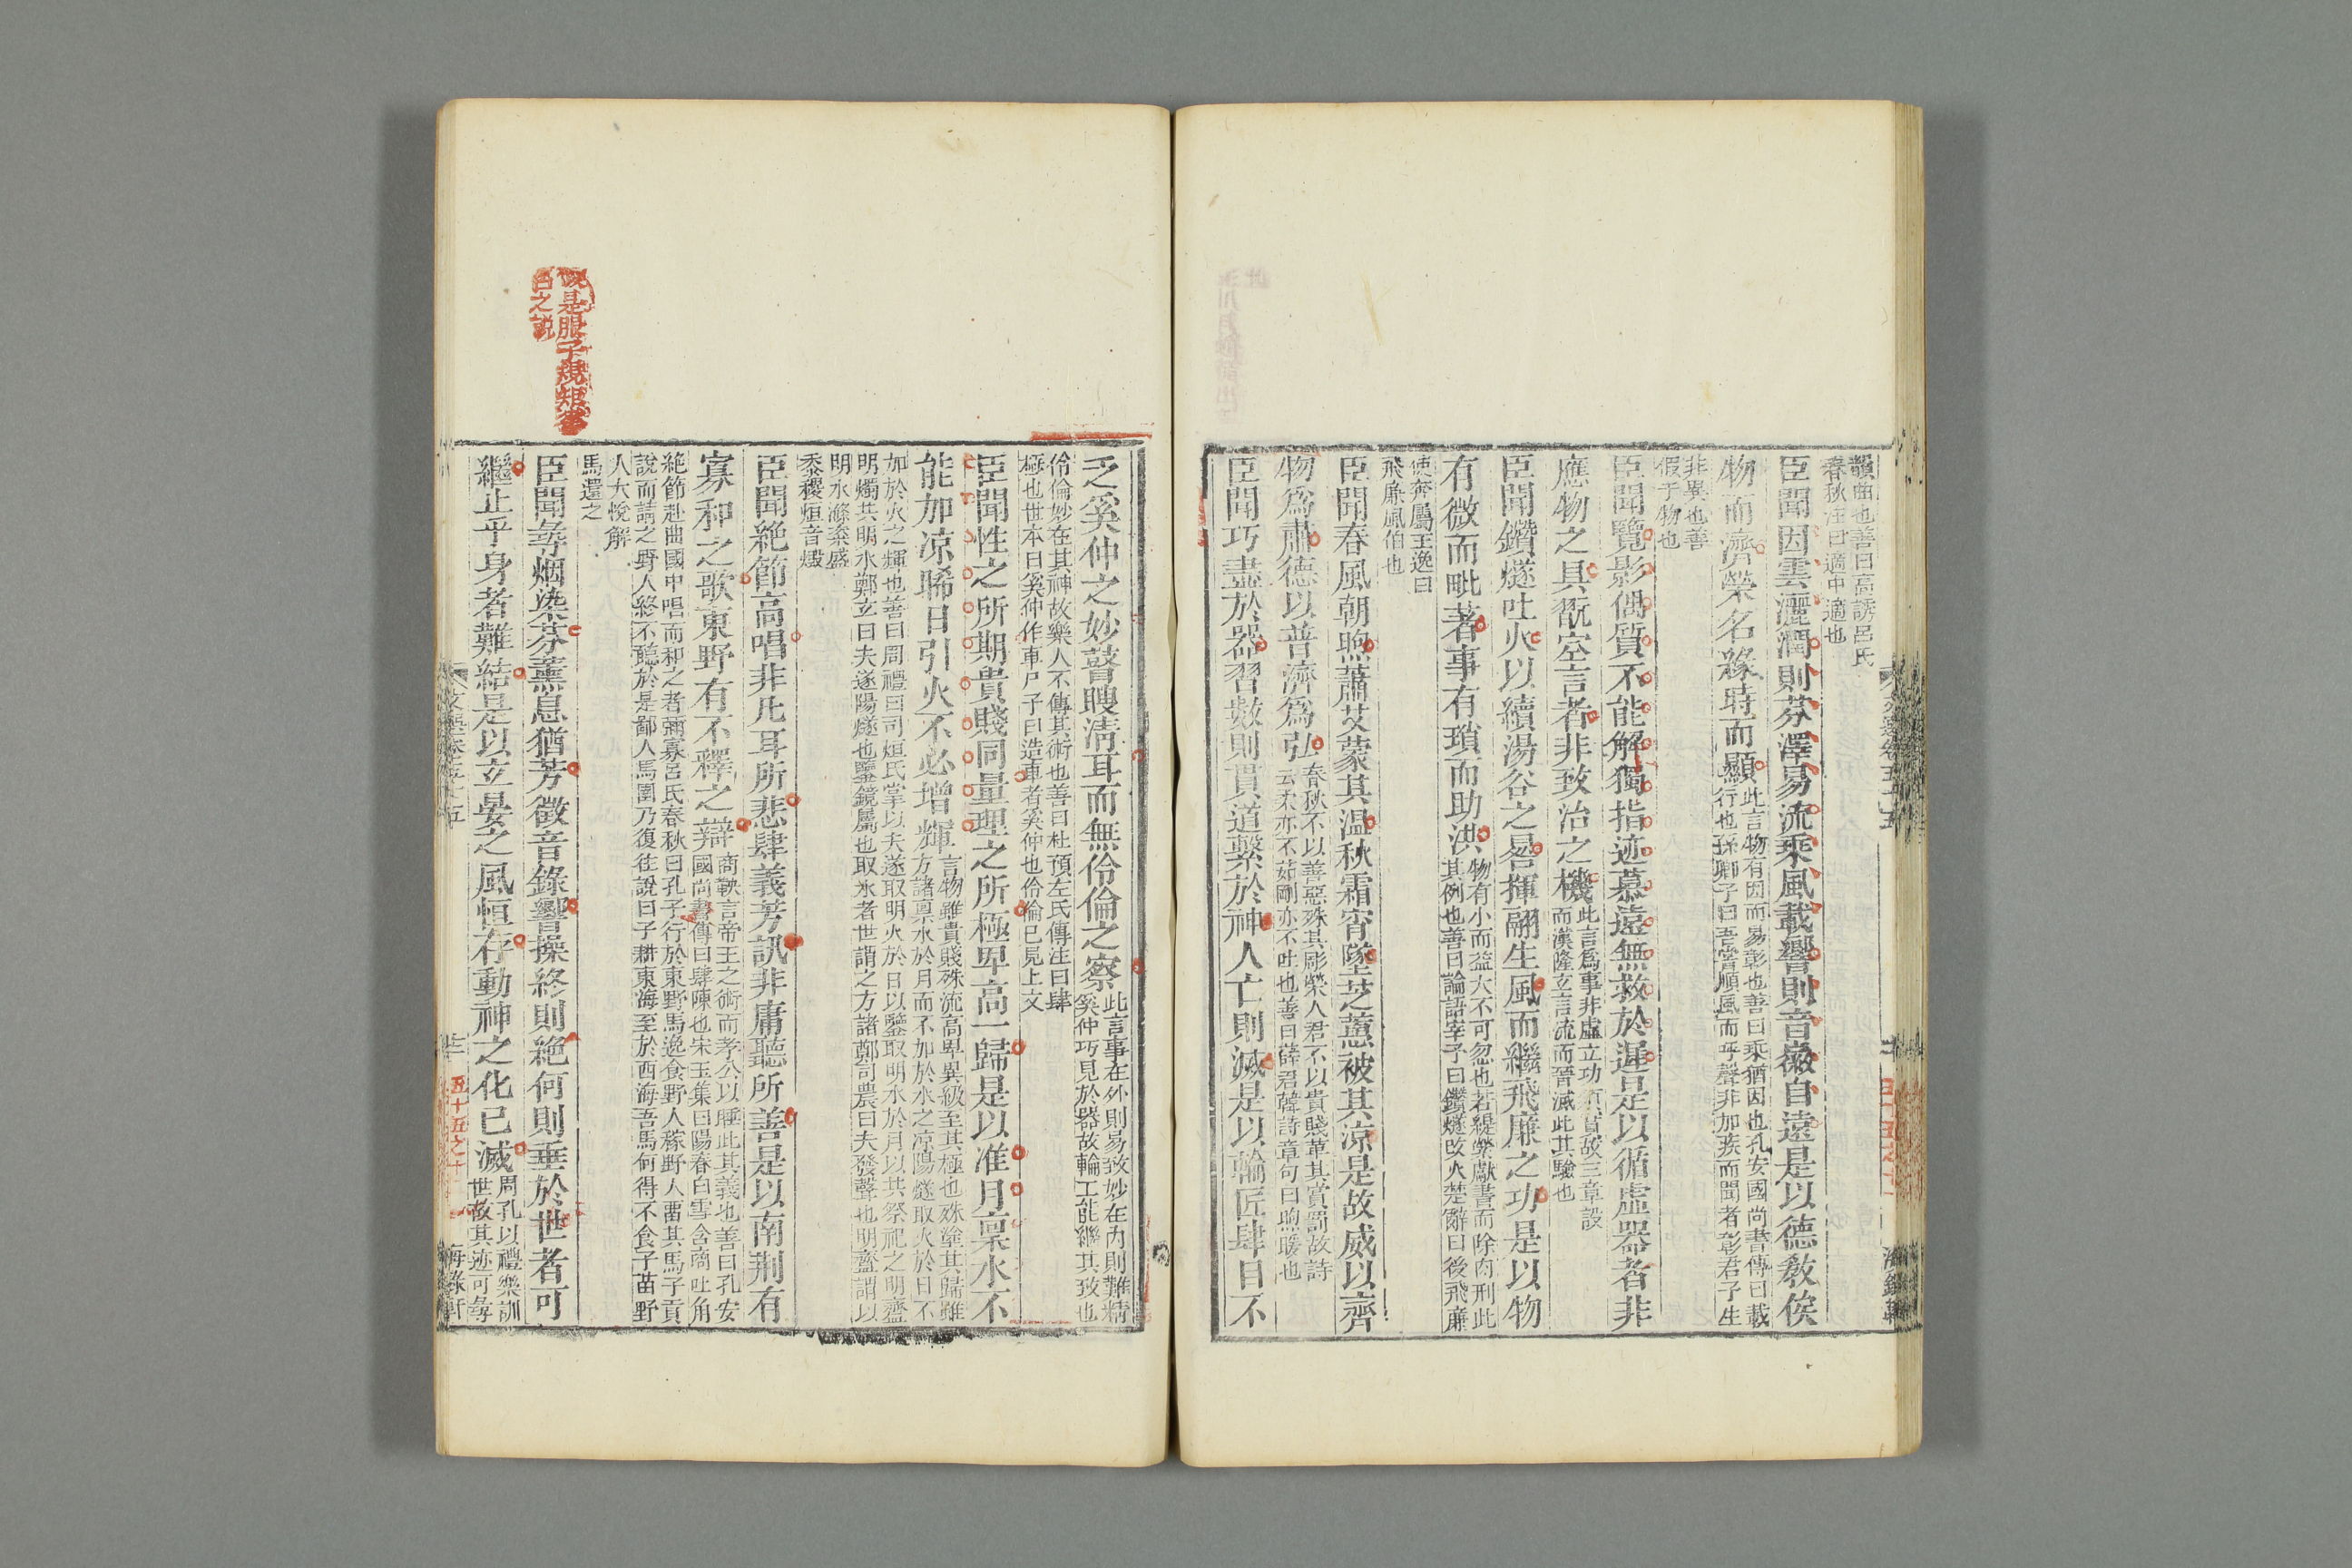 韻曲也善曰高誘呂氏
春秋注曰適中適也
臣聞因雲灑潤則芬澤易流乘風載響則音徽自遠是以德教俟
物而濟榮名緣時而顯
此言物有因而易彰也善曰乘猶因也孔安國尚書傳曰載
行也孫卿子曰吾嘗順風而呼聲非加疾而聞者彰君子生
非異也善
假于物也
臣聞覽影偶質不能解獨指迹慕遠無救於遲是以循虛器者非
應物之具翫空言者非致治之機
此言為事非虛立功須實故三章設
而漢隆玄言流而晉滅此其驗也
臣聞鑽燧吐火以續湯谷之晷揮翮生風而繼飛廉之功是以物
有微而毗著事有瑣而助洪
物有小而益大不可忽也若緹縈獻書而除肉刑此
其例也善曰論語宰予曰鑽燧改火楚辭曰後飛廉
使奔屬王逸曰
飛廉風伯也
臣聞春風朝煦蕭艾蒙其温秋霜宵墜芝蕙被其凉是故威以齊
物爲肅德以普濟爲弘
春秋不以善惡殊其彫榮人君不以貴賤革其賞罰故詩
云柔亦不茹剛亦不吐也善曰薛君韓詩章句曰煦暖也
臣聞巧盡於器習數則貫道繫於神人亡則滅是以輪匠肆目不
乏奚仲之妙瞽瞍清耳而無伶倫之察
此言事在外則易致妙在内則難精
奚仲巧見於器故輪工能繼其致也
伶倫妙在其神故樂人不傳其術也善曰杜預左氏傳注曰肆
極也世本曰奚仲作車尸子曰造車者奚仲也伶倫已見上文
臣聞性之所期貴賤同量理之所極卑高一歸是以准月禀水不
能加凉晞日引火不必增輝
言物雖貴賤殊流高卑異級至其極也殊塗其歸雖
方諸禀水於月而不加於水之凉陽燧取火於日不
加於火之輝也善曰周禮曰司烜氏掌以夫遂取明火於日以鑒取明水於月以共祭祀之明齍
明燭共明水鄭玄曰夫遂陽燧也鑒鏡屬也取水者世謂之方諸鄭司農曰夫發聲也明齍謂以
明水滫粢盛
黍稷烜音燬
臣聞絶節高唱非凡耳所悲肆義芳訊非庸聽所善是以南荆有
寡和之歌東野有不釋之辯
商鞅言帝王之術而孝公以睡此其義也善曰孔安
國尚書傳曰肆陳也宋玉集曰陽春白雪含商吐角
絶節赴曲國中唱而和之者彌寡呂氏春秋曰孔子行於東野馬逸食野人稼野人畱其馬子貢
說而請之野人終不聽於是鄙人馬圉乃復往說曰子耕東海至於西海吾馬何得不食子苗野
人大悅解
馬還之
臣聞尋烟染芬薰息猶芳徵音錄響操終則絶何則垂於世者可
繼止乎身者難結是以玄晏之風恒存動神之化已滅
周孔以禮樂訓
世故其迹可尋
五十五之十
海錄軒